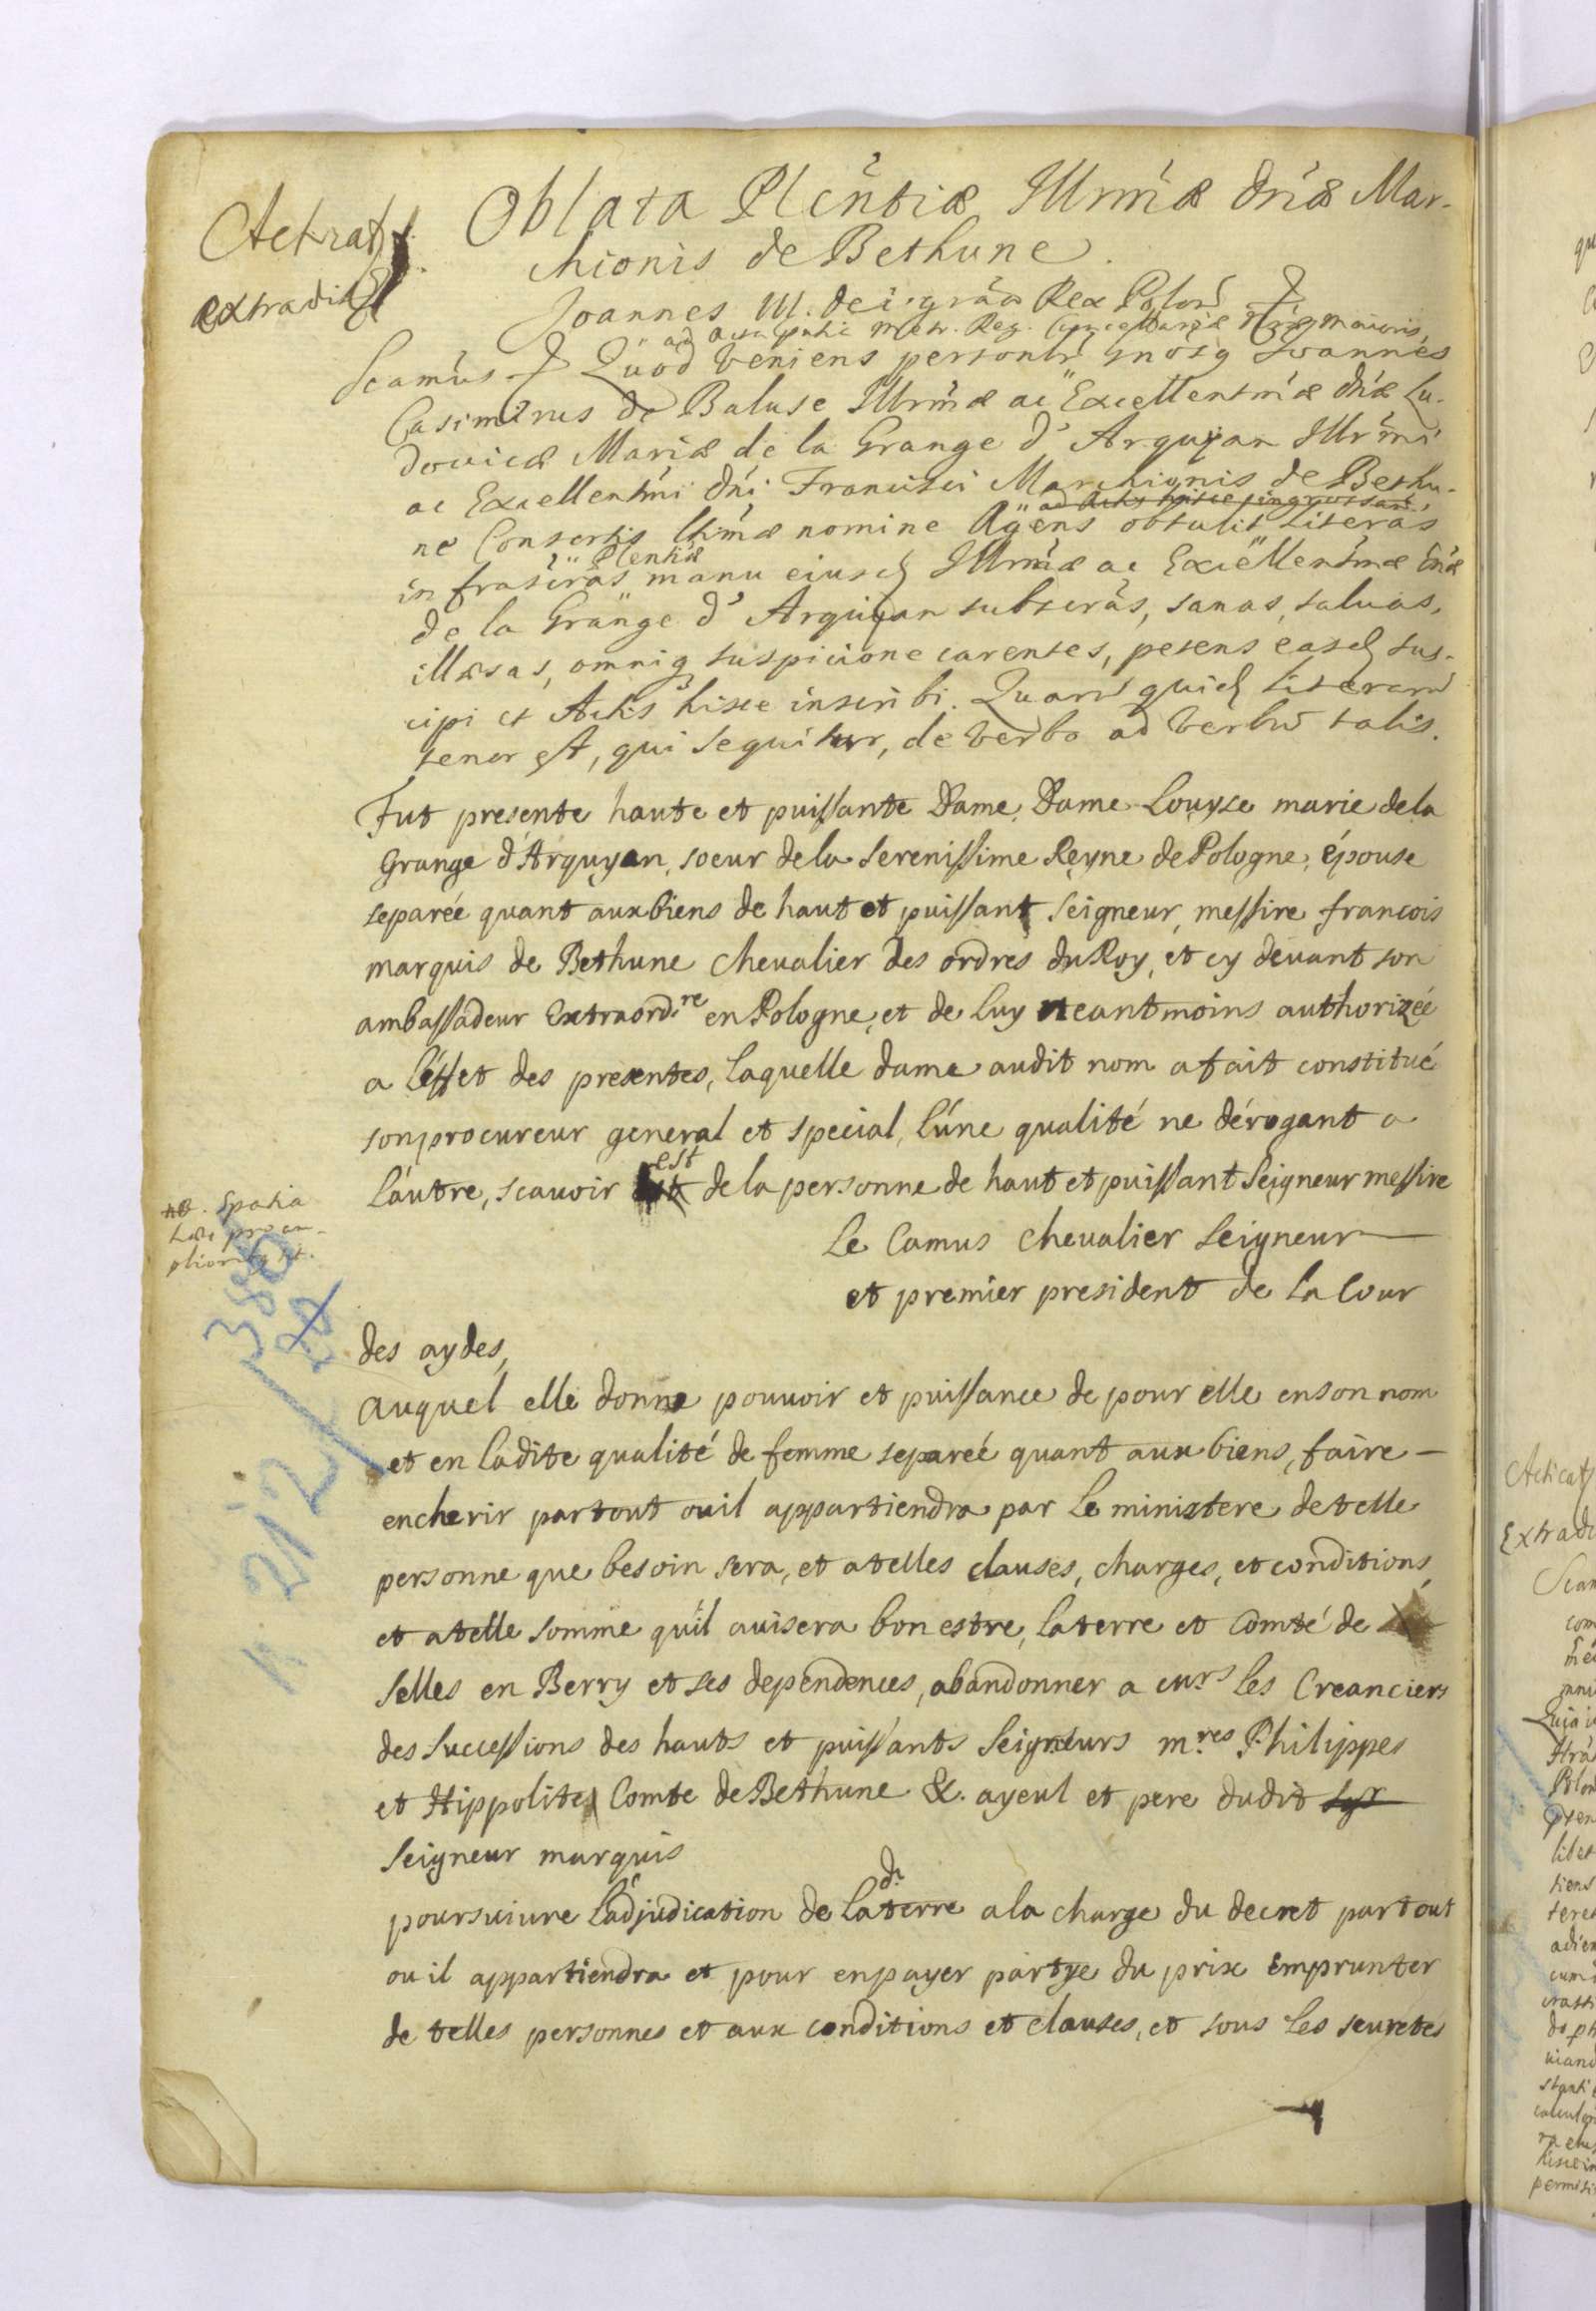 Oblata Plentiæ Illrmæ dnæ Mar-
chionis de Bethune.
Acticat
extradit
Joannes III. dei gráa Rex Polon
ad Acta pntia Metr. Reg. Cancellariæ Regni maioris
Scamus Quod veniens personlr gnosg Joannes
Casimirus de Baluse Illrmæ ac Excellentmæ dnæ Lu-
douicæ Mariæ de la Grange d' Arquyan Illrmi
ac Excellentmi dni Francisci Marchionis de Bethu-
ad Acta hisce ingrossari
ne Consortis ltimæ nomine Agens obtulit literas
Plentiæ
infrascras manu eiusd Illrmæ ac Excellentmæ dnæ
de la Grange d' Arquyan subscras, sanas, saluas,
illæsas, omniq suspicione carentes, petens easd sus-
cipi et Actis hisce inscribi. Quaru quid literaru
tenor est, qui sequitur, de verbo ad verbu talis.
Fut presente haute et puissante Dame, Dame Louyse marie de la
Grange d'Arquyan, soeur de la serenissime Reyne de Pologne, épouse
separée quant aux biens de haut et puissant seigneur, messire francois
marquis de Bethune chevalier des ordres du Roy, et cy deuant son
ambassadeur Extraord.re en Pologne, et de luy neantmoins authorizée
a l'éffet des presentes, laquelle dame audit nom a fait constitué
son procureur general et special, l'úne qualité ne dérogant a
est
láutre, scauoir de la personne de haut et puissant seigneur messire
NB. Spatia
hæc pro am-
Le Camus chevalier seigneur
et premier president de la Cour
des aydes,
auquel elle donne pouvoir et puissance de pour elle en son nom
et en ladite qualité de femme separée quant aux biens, faire
encherir partout ouil appartiendra par le ministere de telle
personne que besoin sera, et a telles clauses, charges, et conditions,
et a telle somme qu'il auisera bon estre, la terre et Comté de
Selles en Berry et ses dependences, abandonner a eurs les Creanciers
des successions des hauts et puissants seigneurs m.res Philippes
et Hippolite Comte de Bethune &. ayeul et pere dudit
seigneur marquis
dt
poursuiure l'adjudication de la terre a la charge du decret partout
ou il appartiendra et pour en payer partye du prix Emprunter
de telles personnes et aux conditions et clauses, et sous les seuretés
n. 212/386